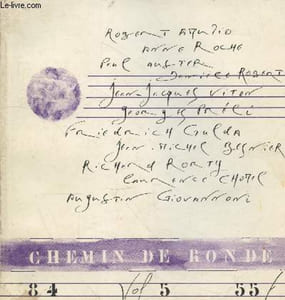 Le-livre.com
Robert Amutio
Anne Roche
Paul Auster
Danièle Robert
Jean-Jacques Viton
Georges
Friedrich Gulda
Jean Michel Besnier
Richard Rorty
Laurence Chotel
Augustin Giovannoni
CHEMIN DE RONDE
84 Vol 5 55